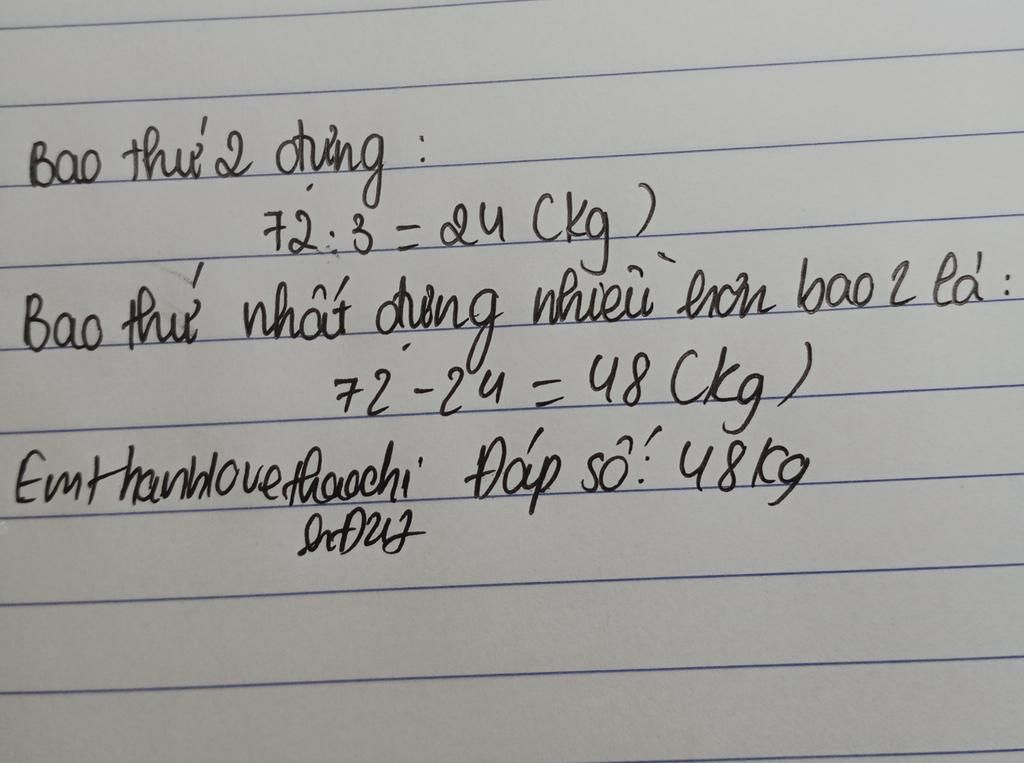 Bao thứ 2 đựng :
72 : 3 = 24 (kg)
Bao thứ nhất đựng nhiều hơn bao 2 là :
72 - 24 = 48 (kg)
Emthanhlovethaochi Đáp số : 48kg